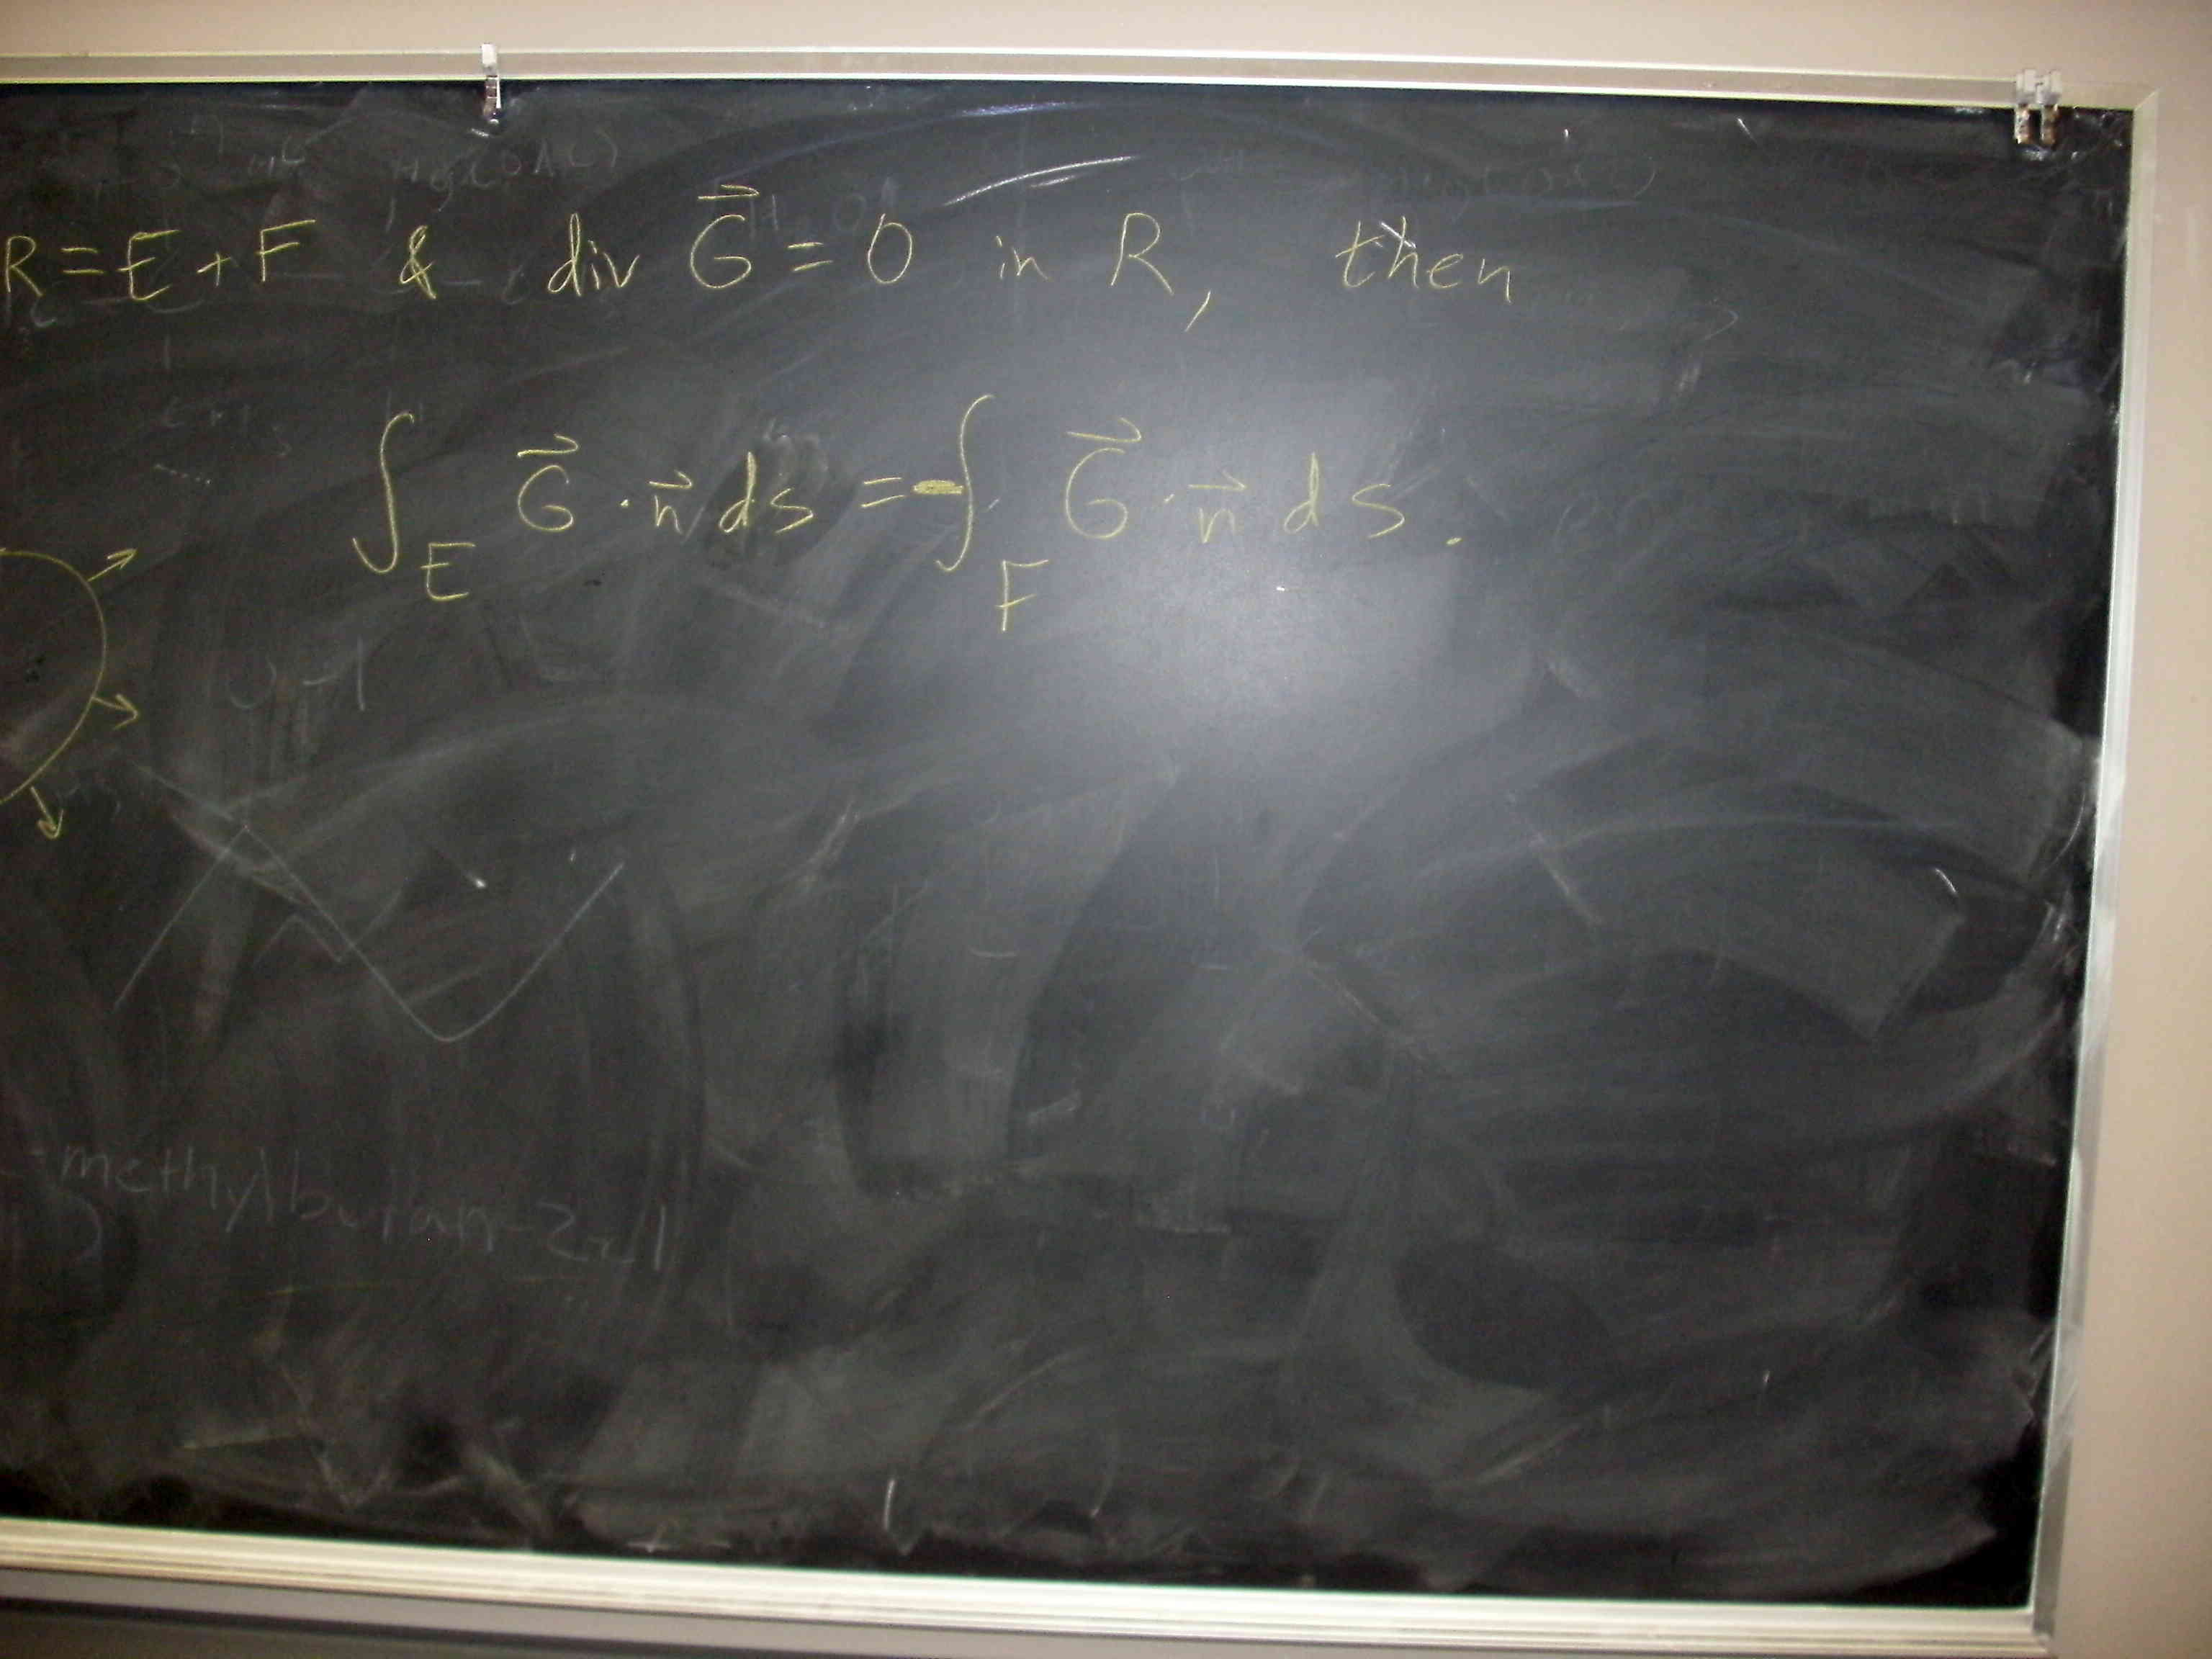 R = E + F & div G⃗ = 0 in R, then
∫_E G⃗ · n⃗ ds = -∫_F G⃗ · n⃗ ds.
methylbutan-2-